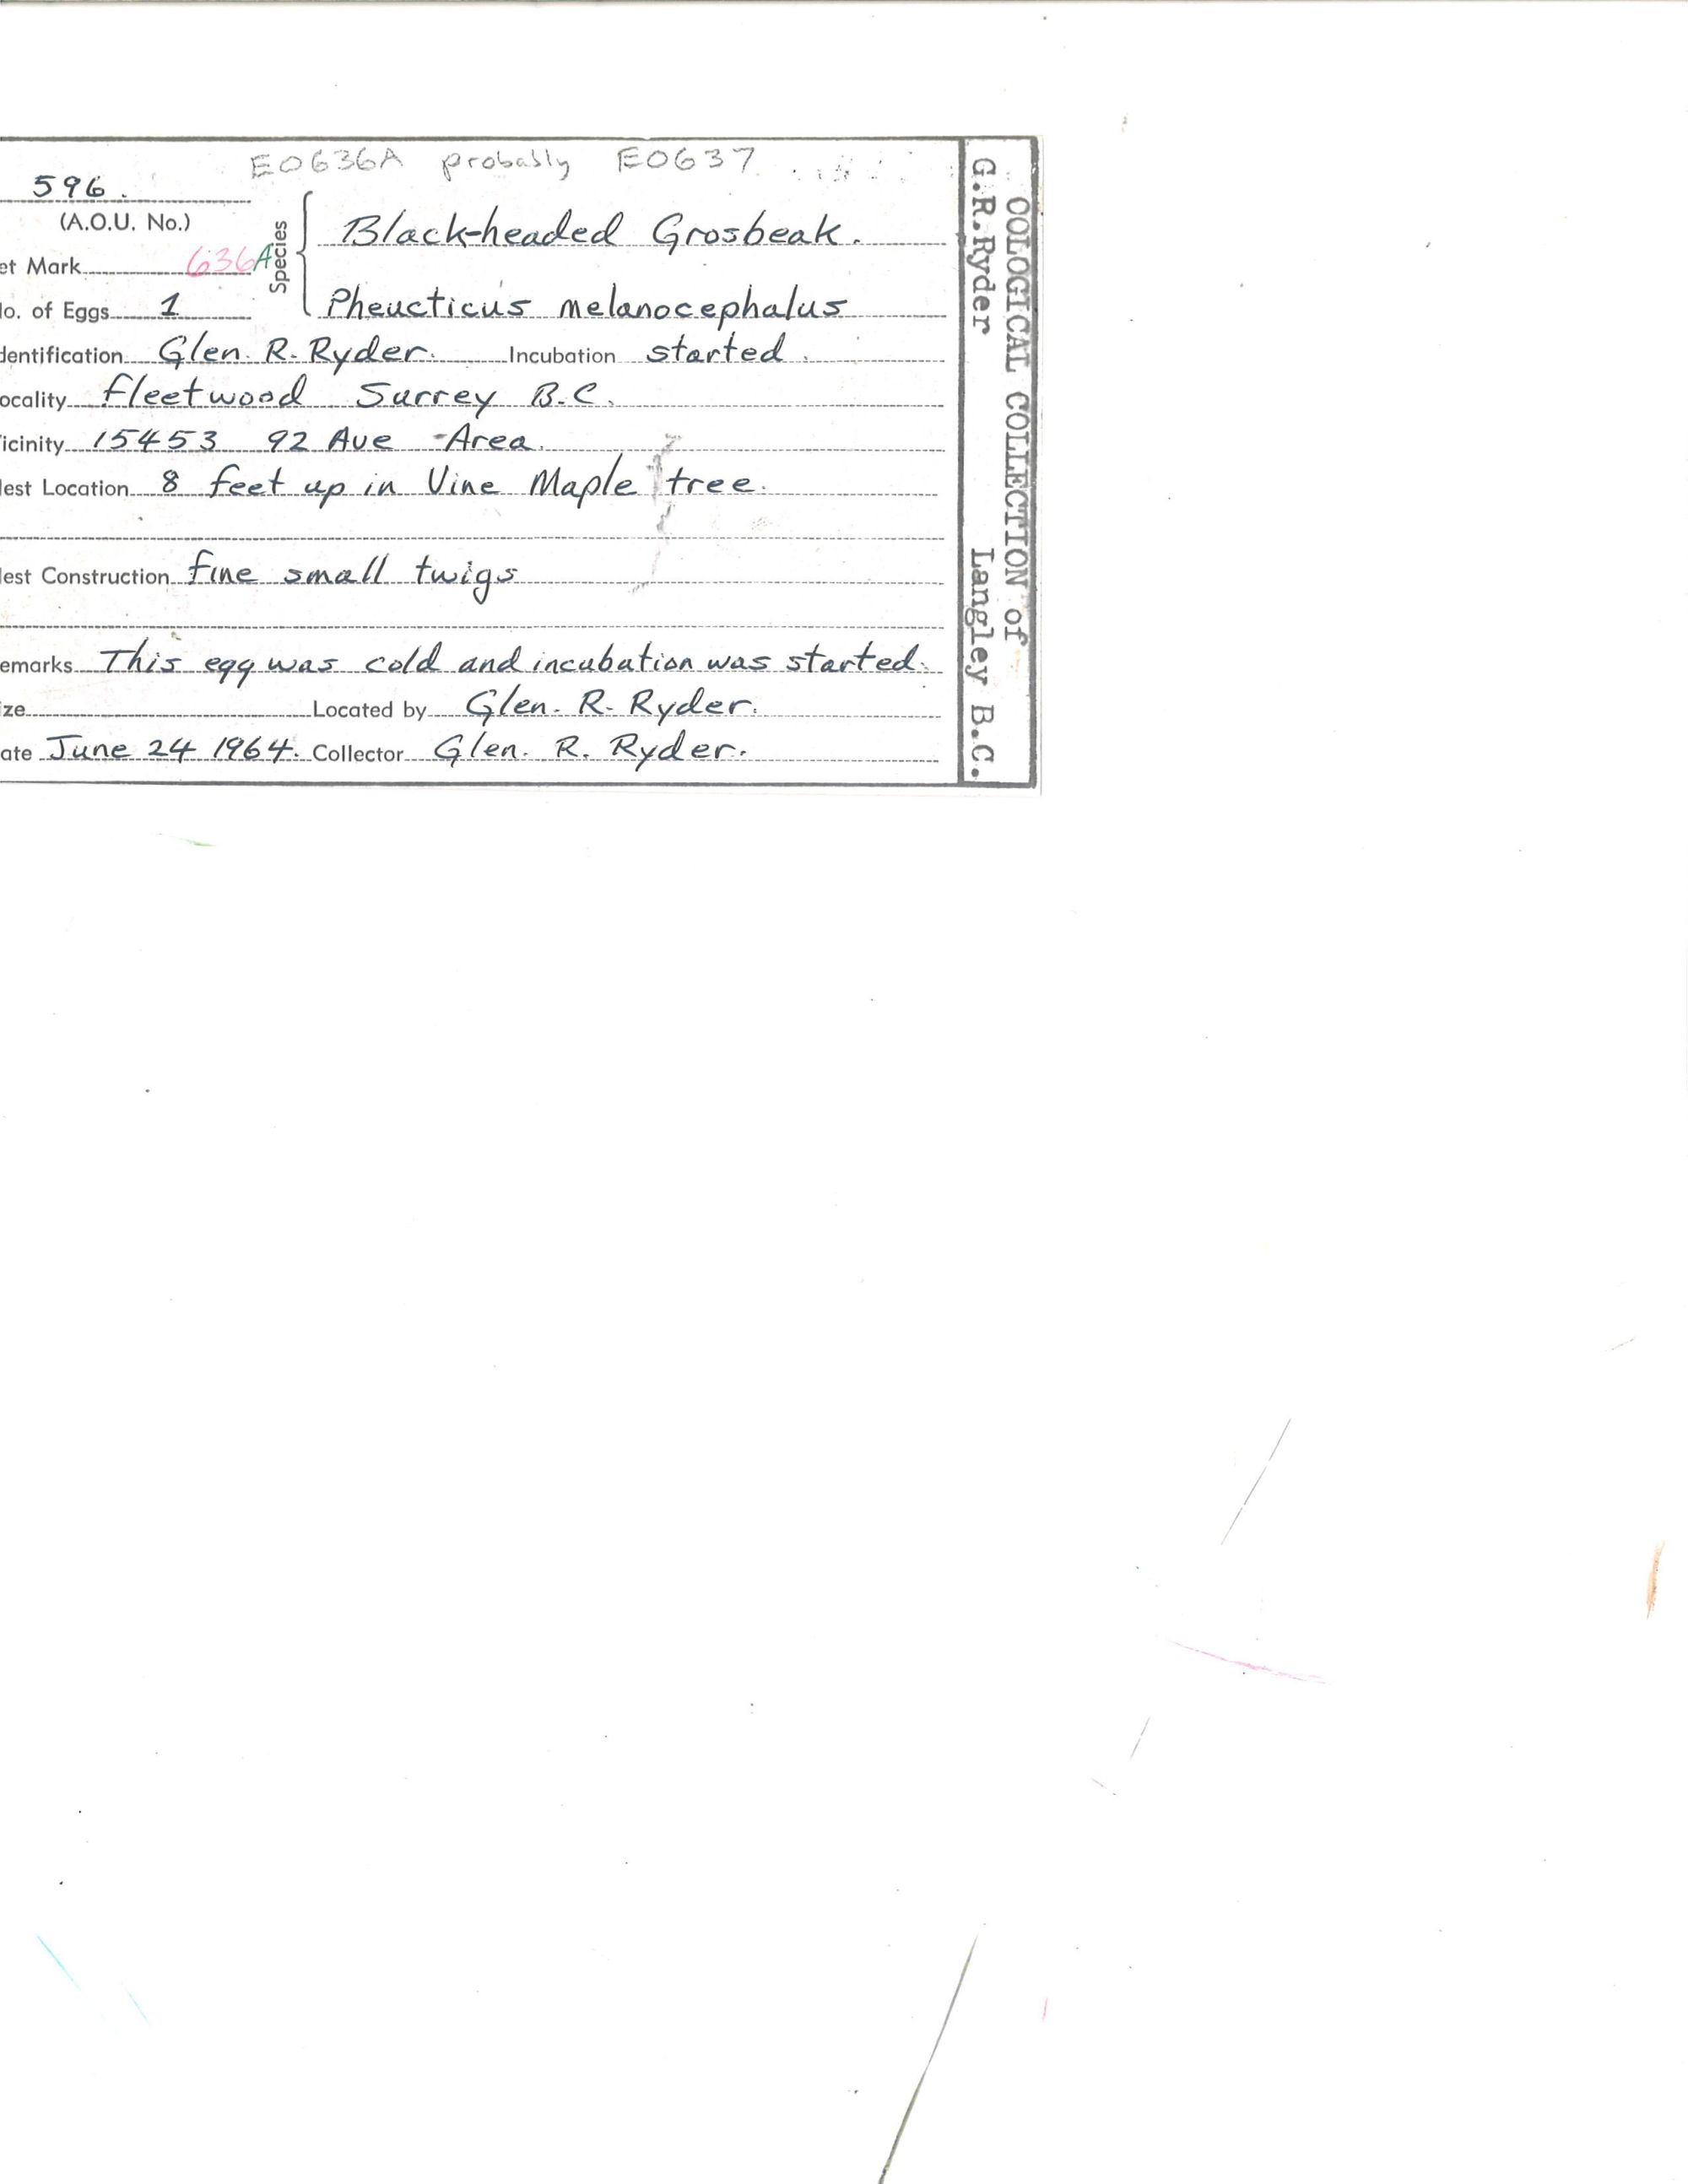 E0636A probably E0637
596.
(A.O.U. No.)
et Mark 636A
Species
Black-headed Grosbeak.
o. of Eggs 1
Pheucticus melanocephalus
dentification Glen. R. Ryder. Incubation started.
ocality Fleetwood Surrey B.C.
icinity 15453 92 Ave - Area.
est Location 8 feet up in Vine Maple tree.
est Construction fine small twigs
emarks This egg was cold and incubation was started.
ze Located by Glen. R. Ryder.
ate June 24 1964. Collector Glen. R. Ryder.
OOLOGICAL COLLECTION of
G.R.Ryder Langley B.C.